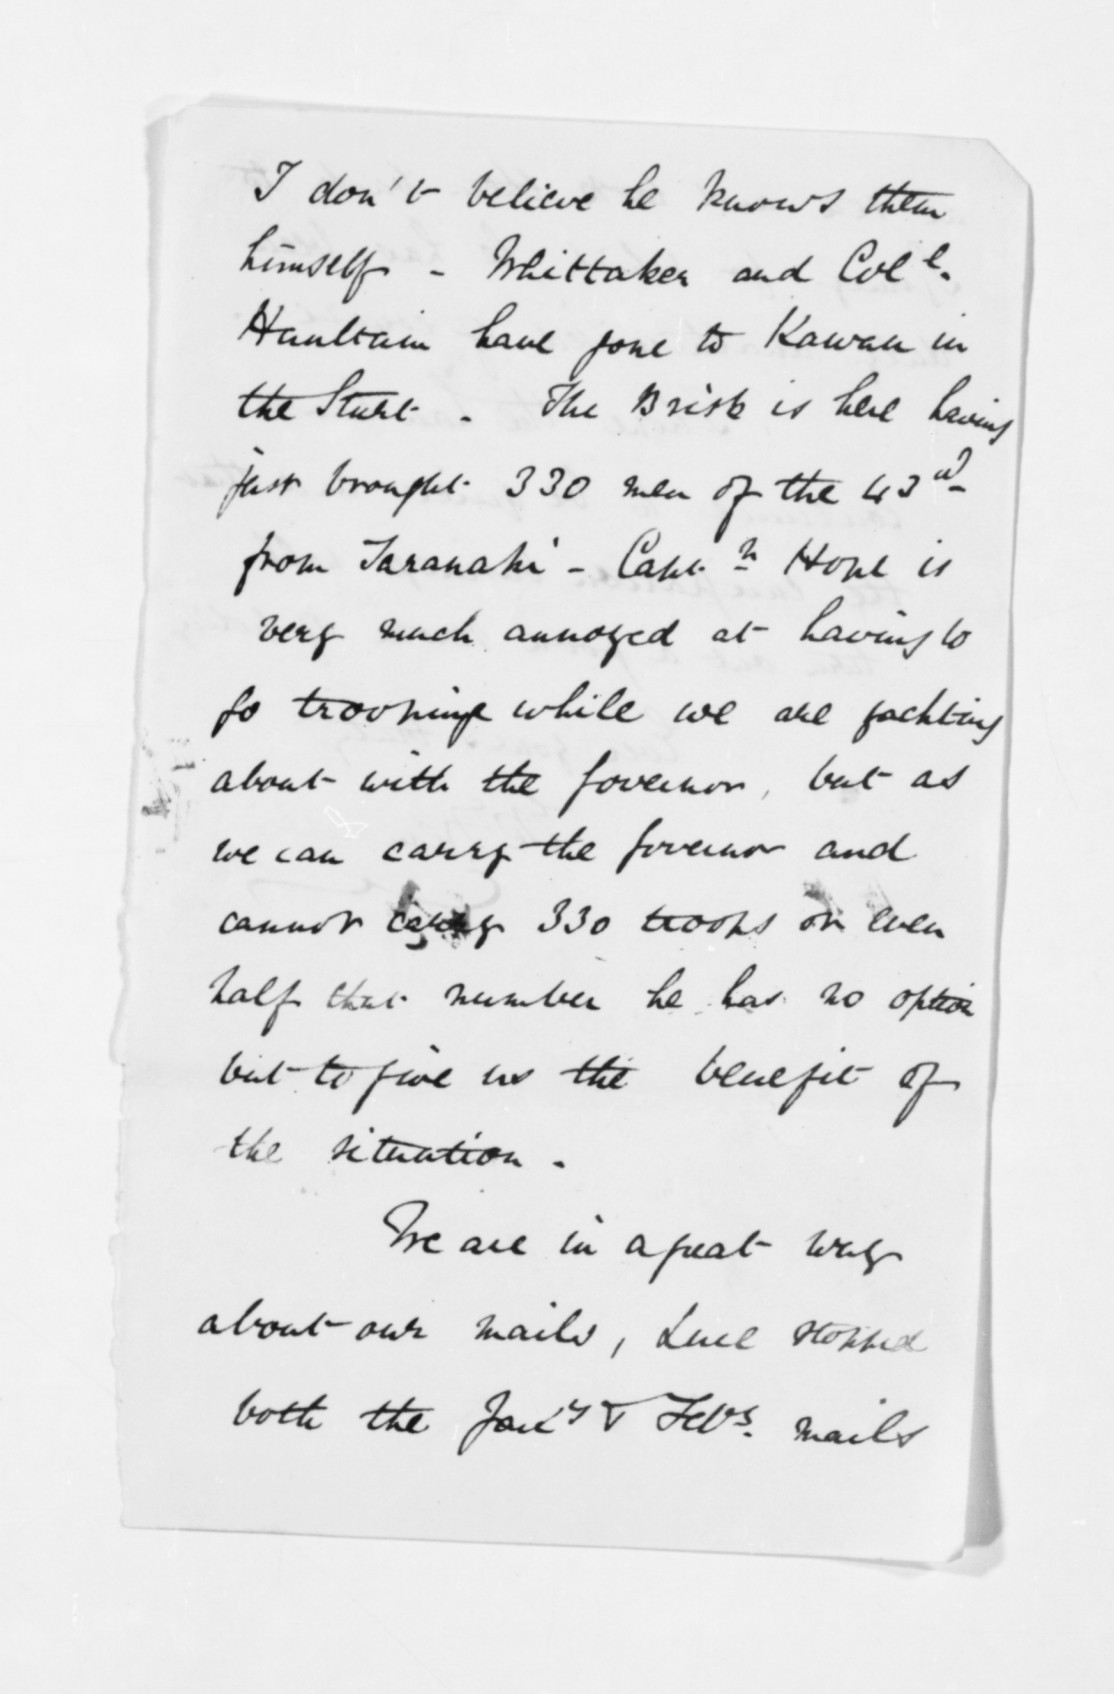 I don't believe he knows them
himself - Whittaker and Col l.
Haultain have gone to Kawau in
the Sturt - The Brisk is here having
just brought 330 men of the 43rd
from Taranaki - Capt n Hope is
very much annoyed at having to
go trooping while we are yachting
about with the Governor, but as
we can carry the Governor and
cannot carry 330 troops or even
half that number he has no option
but to give us the benefit of
the situation.
We are in a great way
about our mails, Luce stopped
both the Jany & Feby. mails